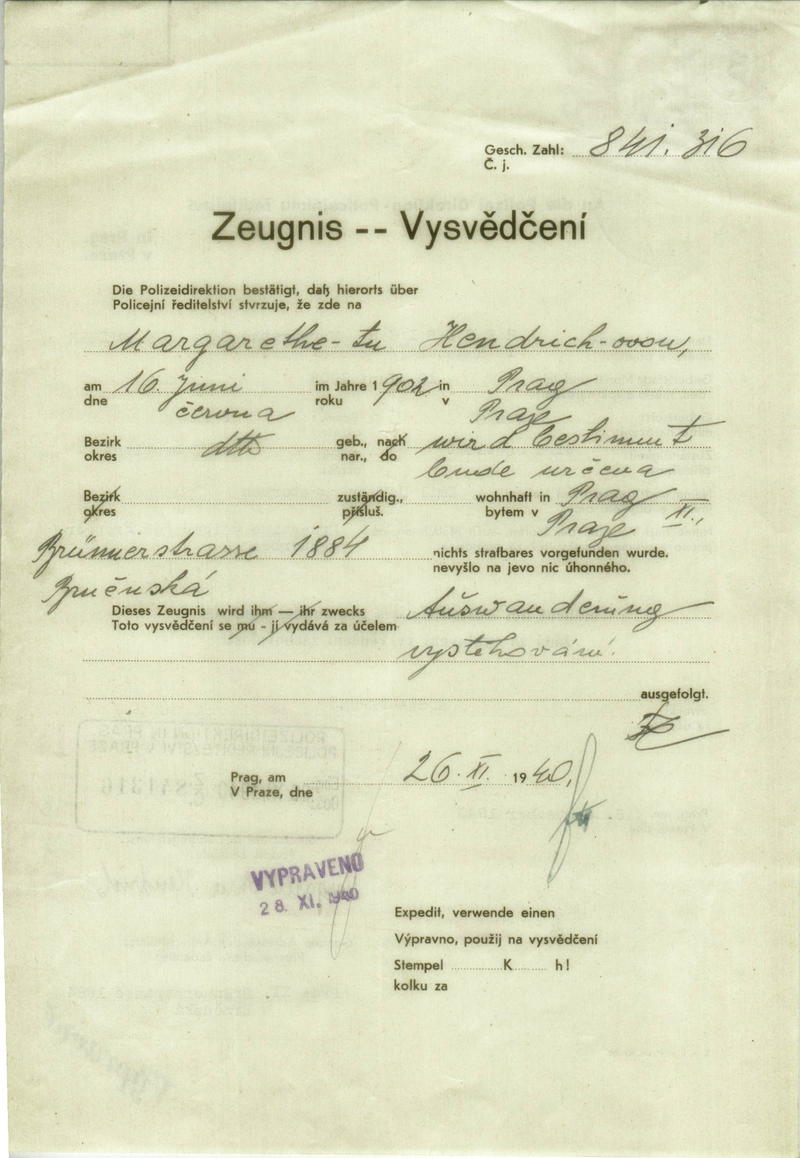 Gesch. Zahl: 841.316
Č. j.
Zeugnis -- Vysvědčení
Die Polizeidirektion bestätigt, daß hierorts über
Policejní ředitelství stvrzuje, že zde na
Margarethe-tu Hendrich-ovou,
am 16. Juni im Jahre 1902 in Prag
dne června roku v Praze
Bezirk dtto geb., nach wird bestimmt
okres nar., do bude určena
Bezirk zuständig., wohnhaft in Prag XI.,
okres přísluš. bytem v Praze
Brünnerstrasse 1884 nichts strafbares vorgefunden wurde.
nevyšlo na jevo nic úhonného.
Dieses Zeugnis wird ihm — ihr zwecks Auswanderung
Toto vysvědčení se mu - jí vydává za účelem
vystěhování.
ausgefolgt.
Prag, am 26. XI. 1940,
V Praze, dne
VYPRAVENO
28. XI. 1940
Expedit, verwende einen
Výpravno, použij na vysvědčení
Stempel K h!
kolku za